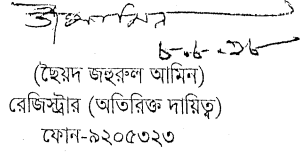 ৮.৮.১৮
(ছৈয়দ জহুরুল আমিন)
রেজিস্ট্রার (অতিরিক্ত দায়িত্ব)
ফোন-৯২০৫৩২৩